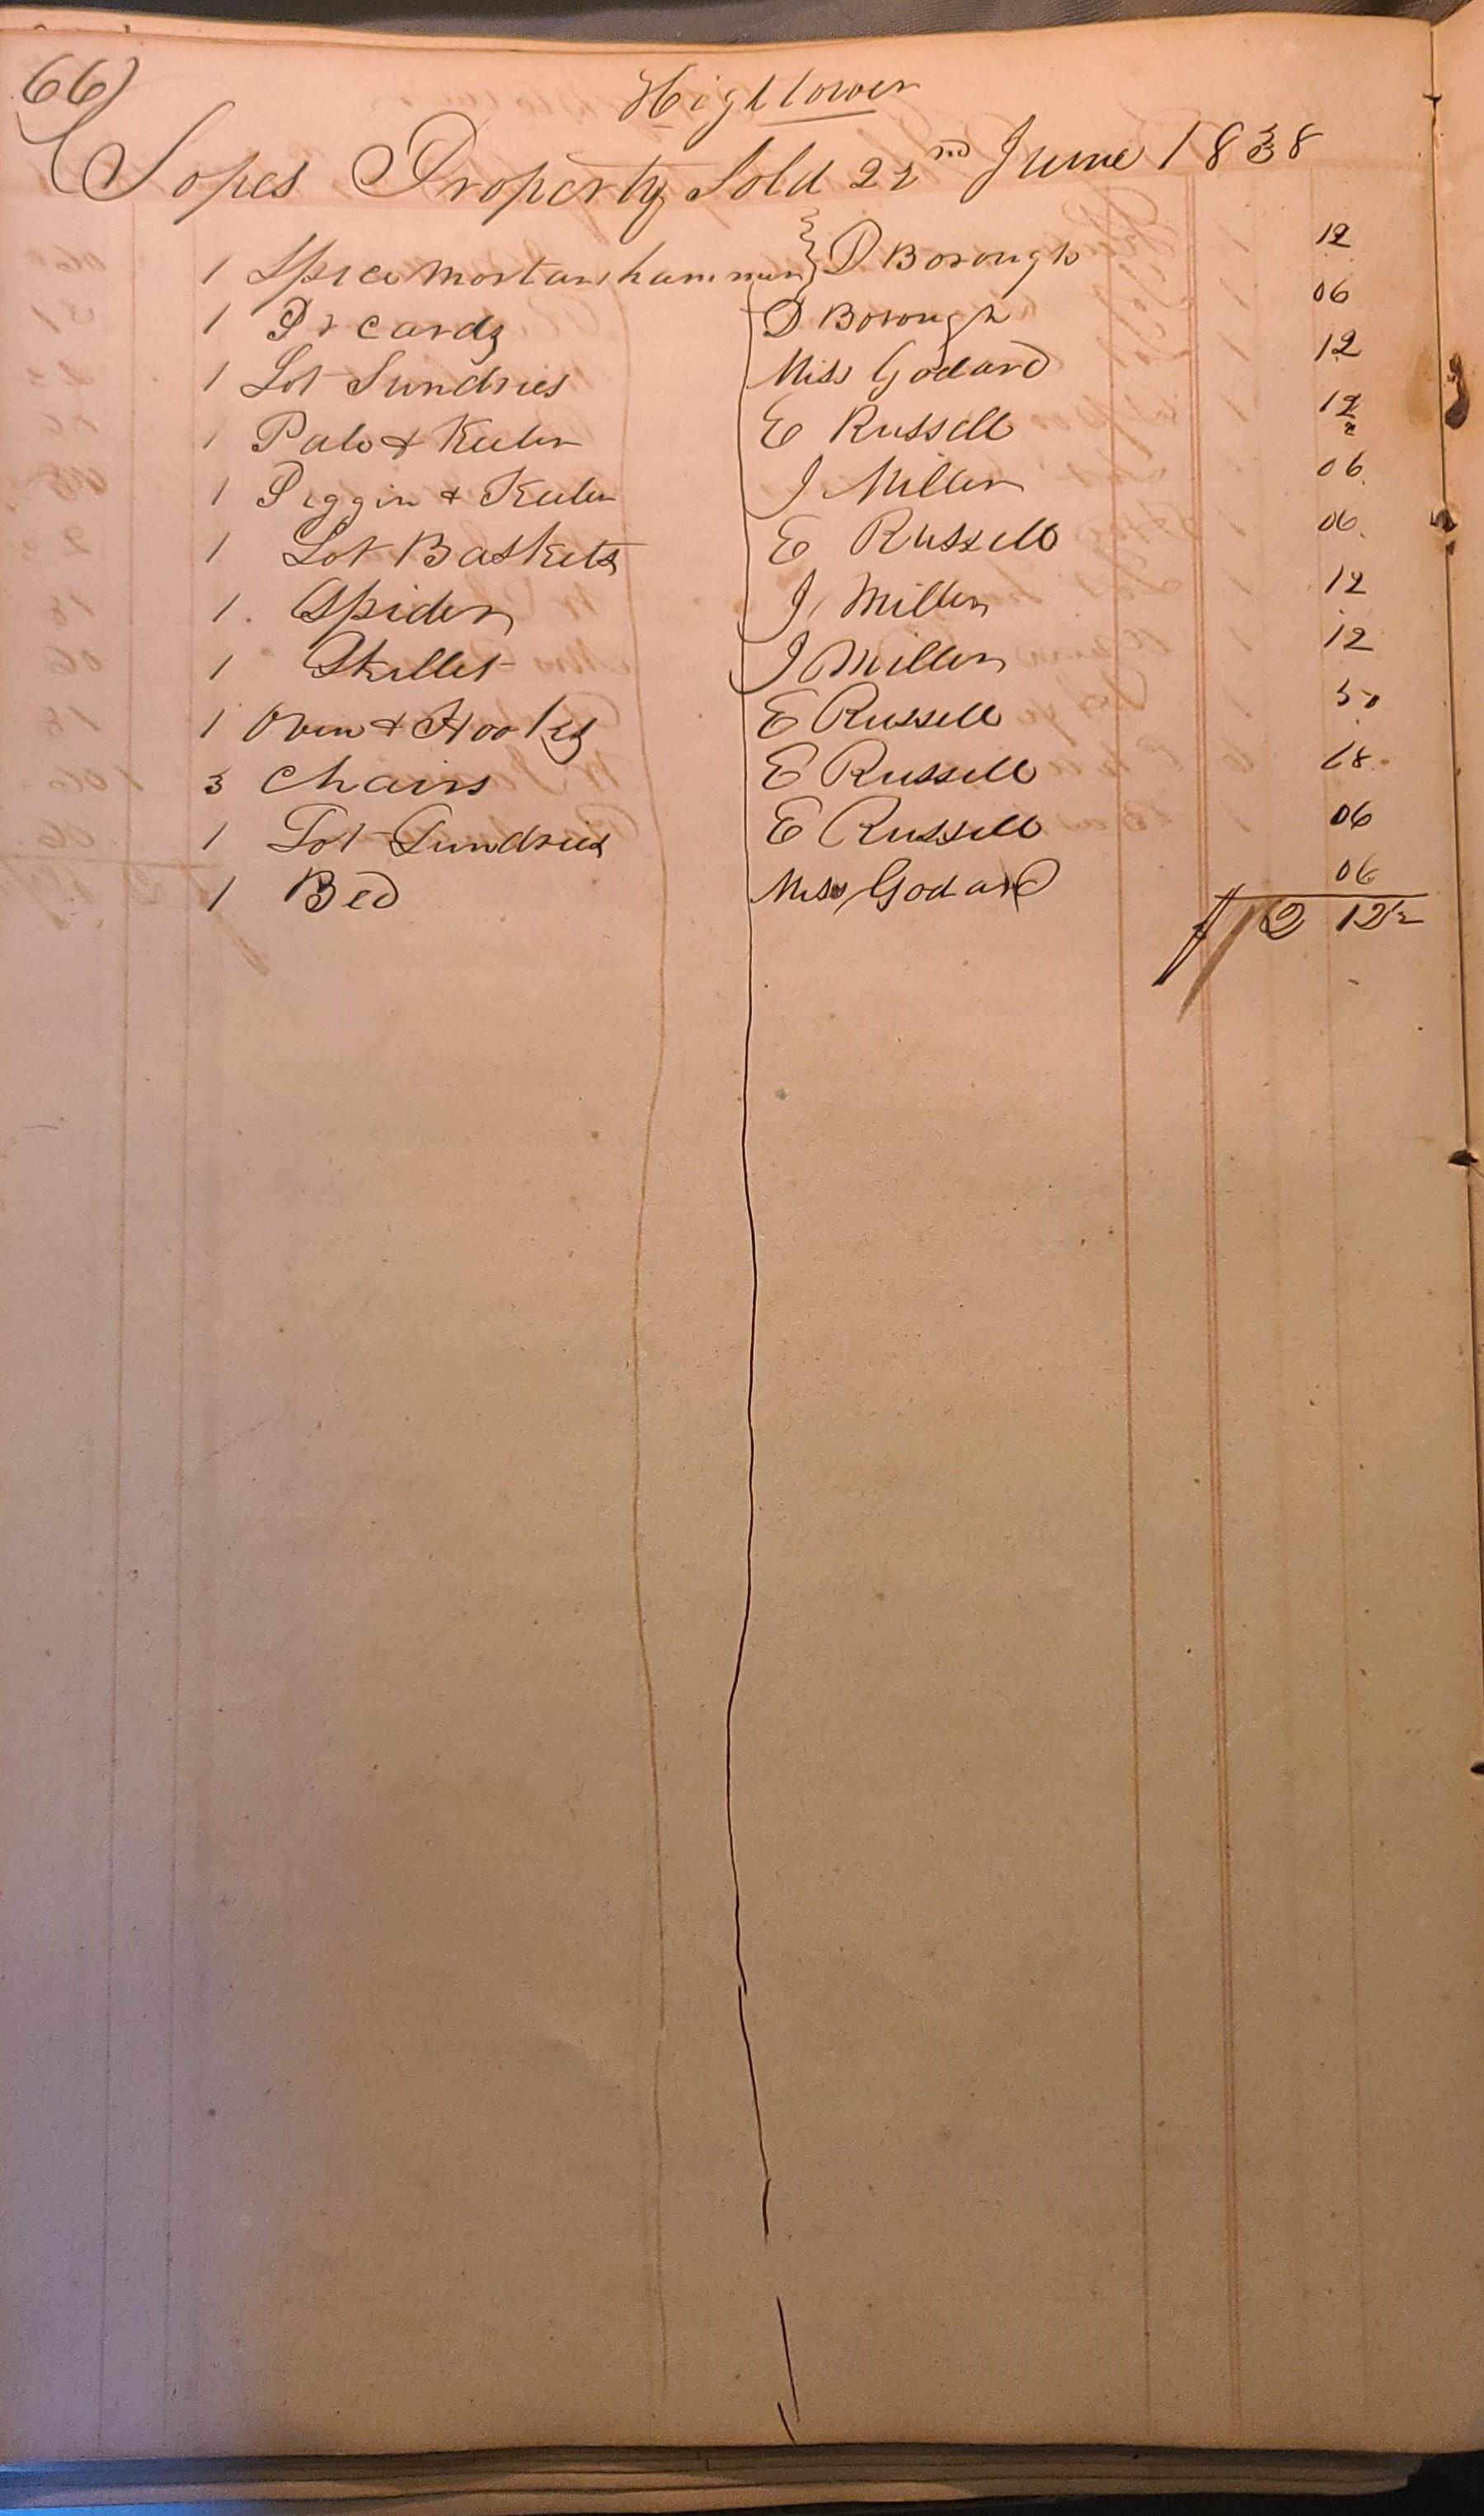 66)
Hightower
Sopes Property Sold 22nd June 1838
1 Spice mortar, hammer } D Borough 12
1 Pr cards D Borough 06
1 Lot Sundries Miss Godard 12
1 Pale & Keeler E Russell 12
1 Piggin & Keeler J Miller 06
1 Lot Baskets E Russell 06
1 Spider J Miller 12
1 Skillet J Miller 12
1 Oven & Hooks E Russell 50
3 Chairs E Russell 18
1 Lot Sundries E Russell 06
1 Bed Miss Godard 06
$ 2 12 1/2